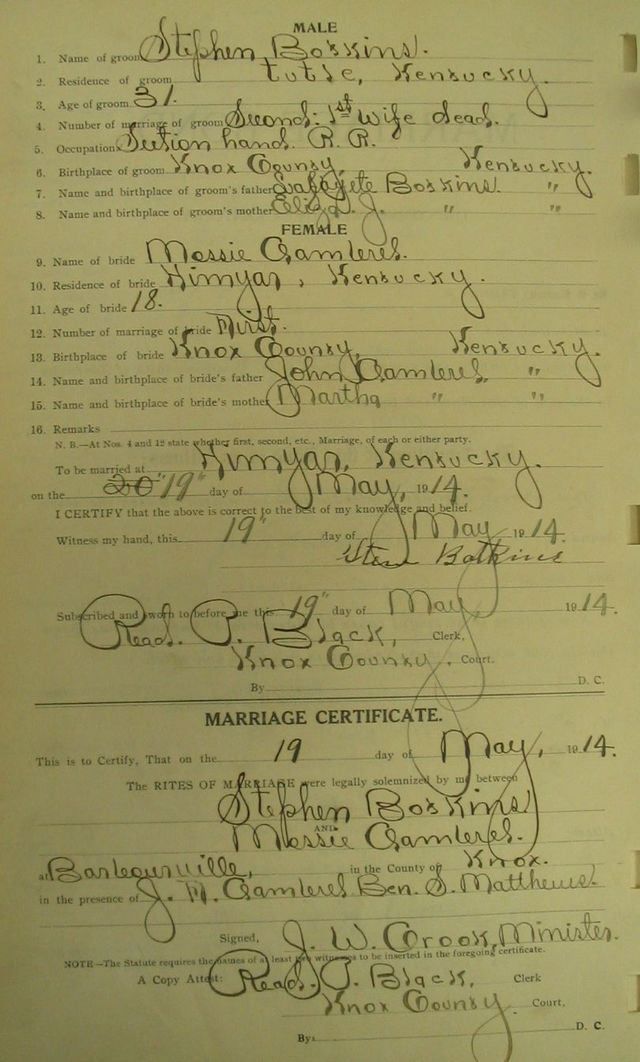 MALE
1. Name of groom Stephen Botkins.
2. Residence of groom Tutle, Kentucky.
3. Age of groom 31.
4. Number of marriage of groom Second: 1st Wife dead.
5. Occupation Section hand. R. R.
6. Birthplace of groom Knox County, Kentucky.
7. Name and birthplace of groom's father Lafayete Botkins. "
8. Name and birthplace of groom's mother Eliza J. " "
FEMALE
9. Name of bride Mossie Gambrel.
10. Residence of bride Himyar, Kentucky.
11. Age of bride 18.
12. Number of marriage of bride First.
13. Birthplace of bride Knox County, Kentucky.
14. Name and birthplace of bride's father John Gambrel. "
15. Name and birthplace of bride's mother Martha " "
16. Remarks
N. B.—At Nos. 4 and 12 state whether first, second, etc., Marriage, of each or either party.
To be married at Himyar, Kentucky.
on the 20" 19" day of May, 1914.
I CERTIFY that the above is correct to the best of my knowledge and belief.
Witness my hand, this 19" day of May 1914.
Steve Botkins
Subscribed and sworn to before me this 19" day of May 1914.
Read. P. Black, Clerk,
Knox County. Court.
By D. C.
MARRIAGE CERTIFICATE.
This is to Certify, That on the 19 day of May, 1914.
The RITES OF MARRIAGE were legally solemnized by me between
Stephen Botkins
AND
Mossie Gambrel.
at Barbourville, in the County of Knox.
in the presence of J. H. Gambrel Ben. S. Matthews.
Signed, J. W. Crook, Minister.
NOTE—The Statute requires the names of at least two witnesses to be inserted in the foregoing certificate.
A Copy Attest: Read. P. Black, Clerk
Knox County Court.
By: D. C.